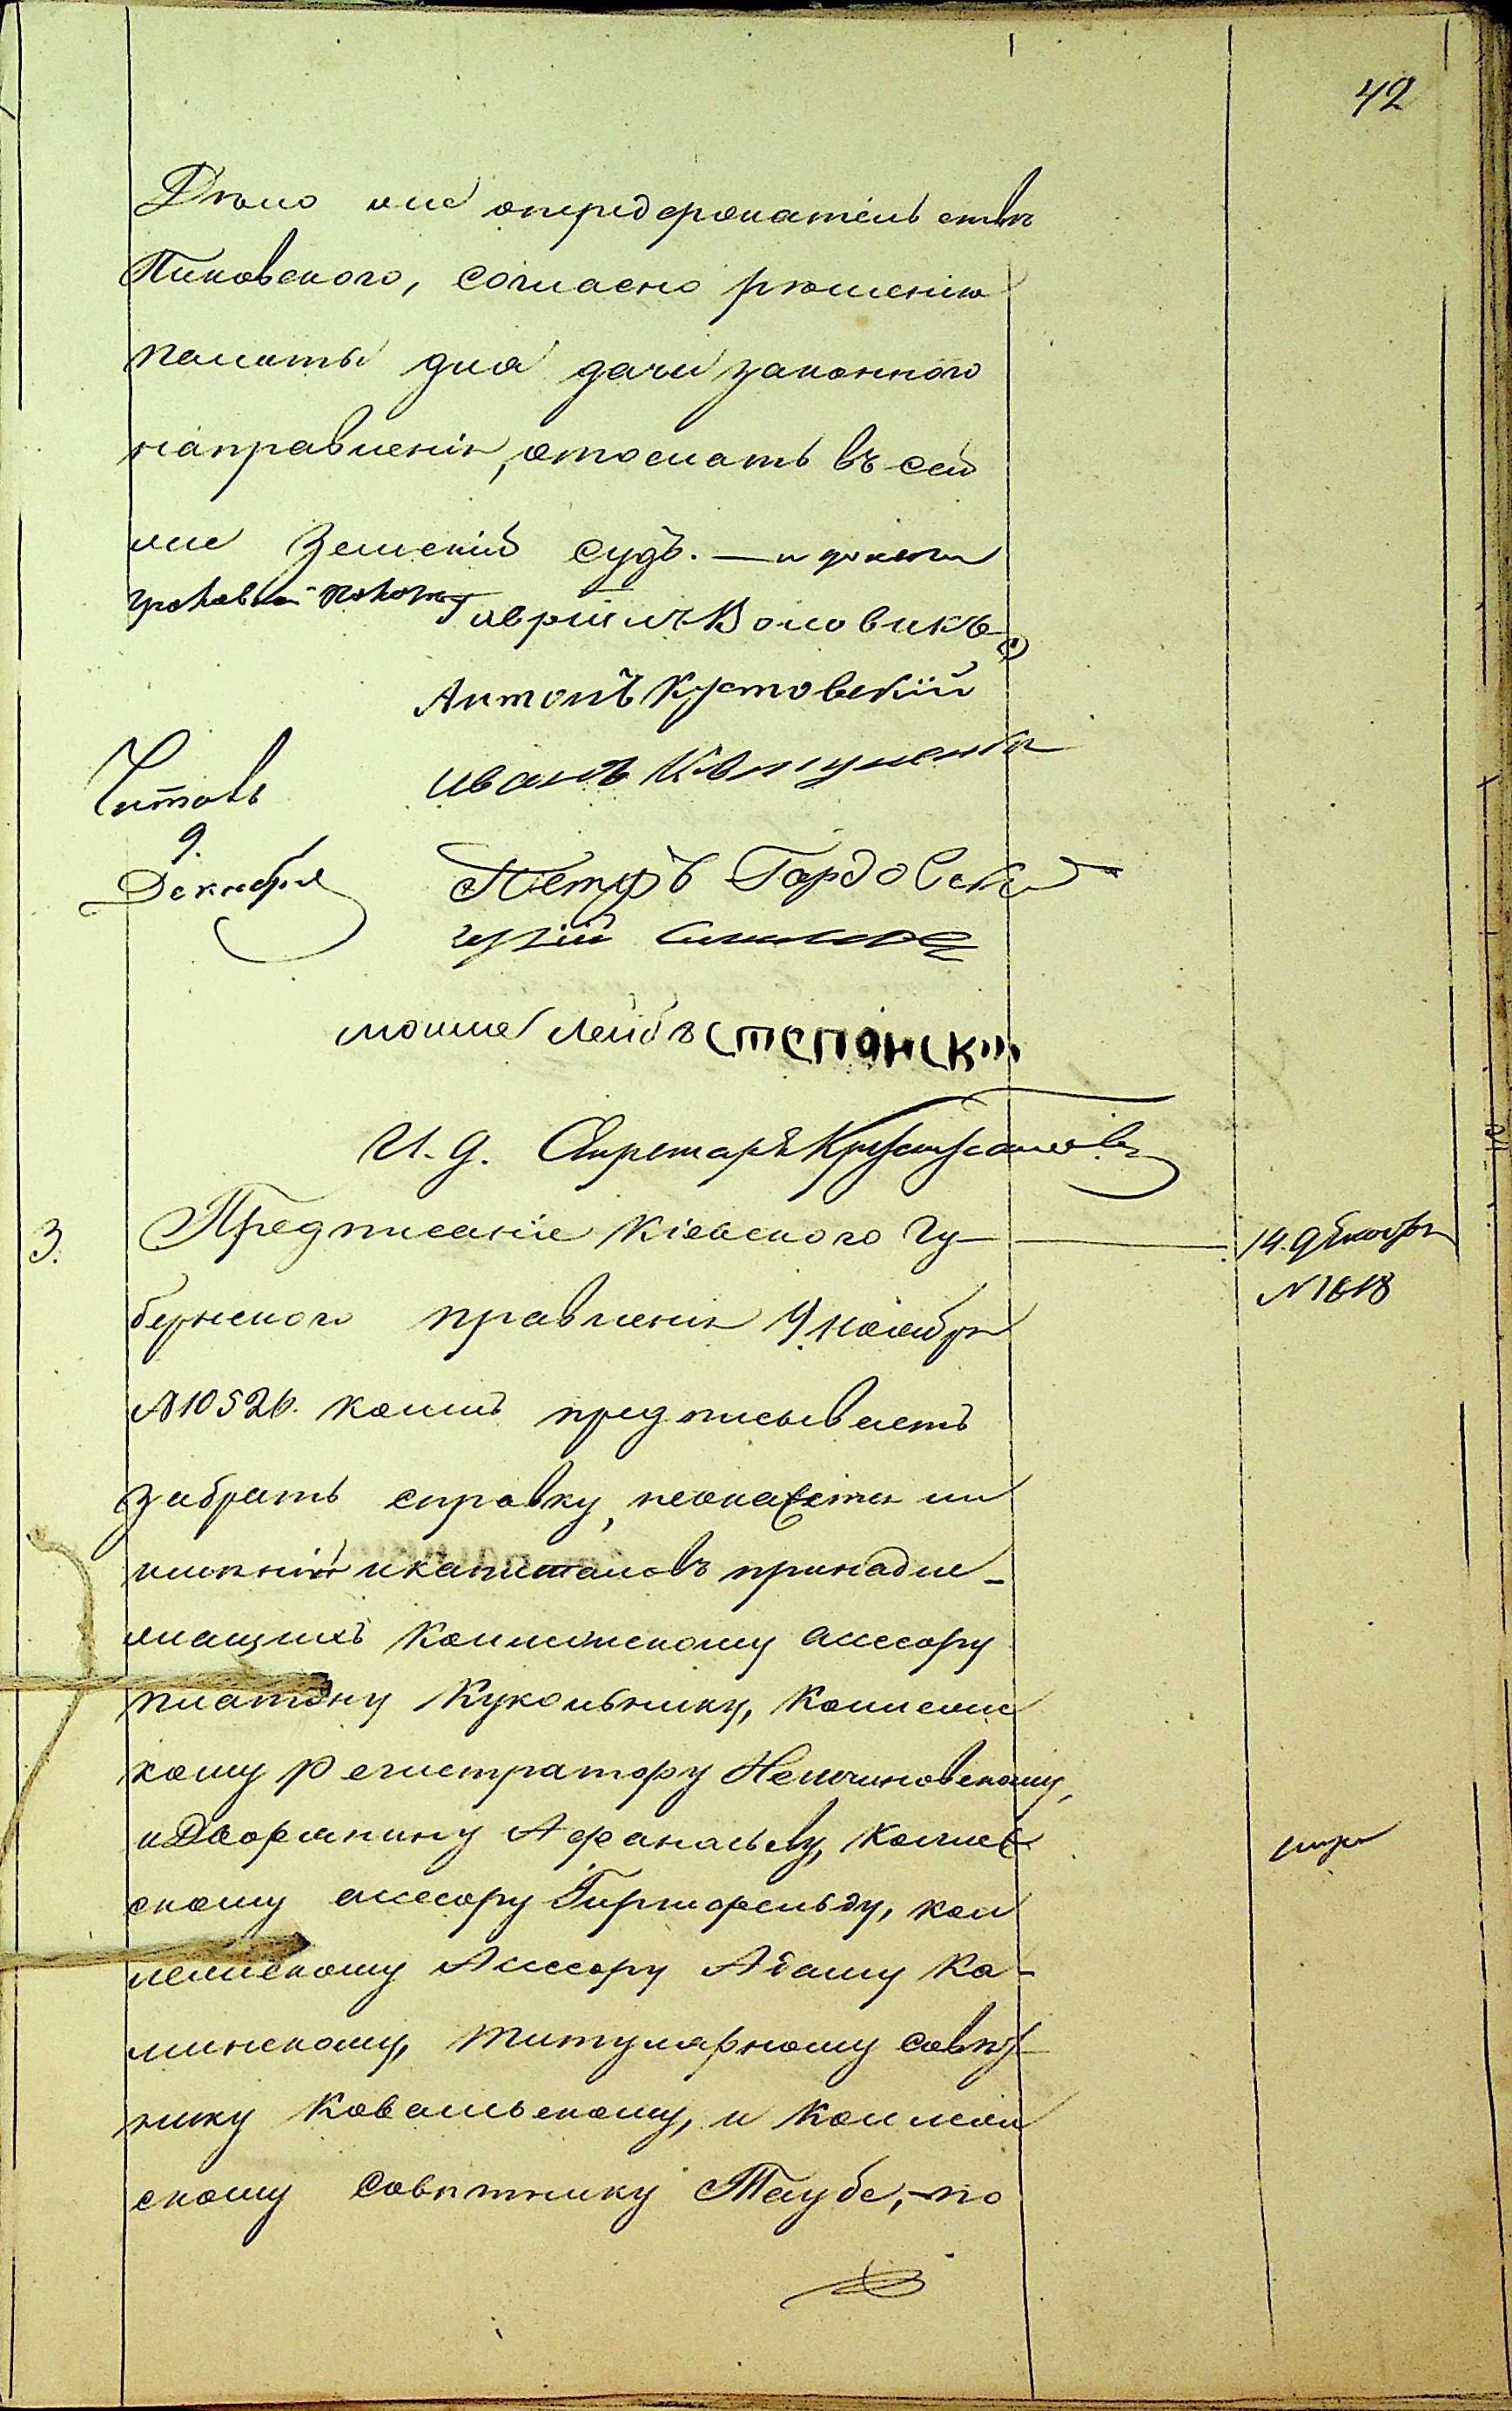 42
Дѣло же о передержательствѣ
Пиковского, согласно рѣшенію
палаты для дачи законного
направленія, отослать въ сей
же Земскій судъ. —
Гавріилъ Воловикъ
Антонъ Кустовскій
Читавъ
Иванъ
9.
Декабря
Петръ Гордовскій
Мошие Лейбъ Степанск
И. д. Секретаря
3.
Предписаніе Кіевского Гу-
14. Декабря
бернского правленія 9 ноября
N 1618
№ 10526. коимъ предписываетъ
забрать справку, неокажется ли
имѣній и капиталовъ принадле-
жащихъ Коллежскому ассесору
Платону Кукольнику, Коллежс
кому Регистратору Немчиновскому,
и Дворянину Афанасьеву, Коллеж
скому ассесору Гиршфельду, кол
лежскому Ассесору Адаму Ка-
минскому, титулярному Совѣт
нику Ковальскому, и Коллеж
скому Совѣтнику Таубе, по